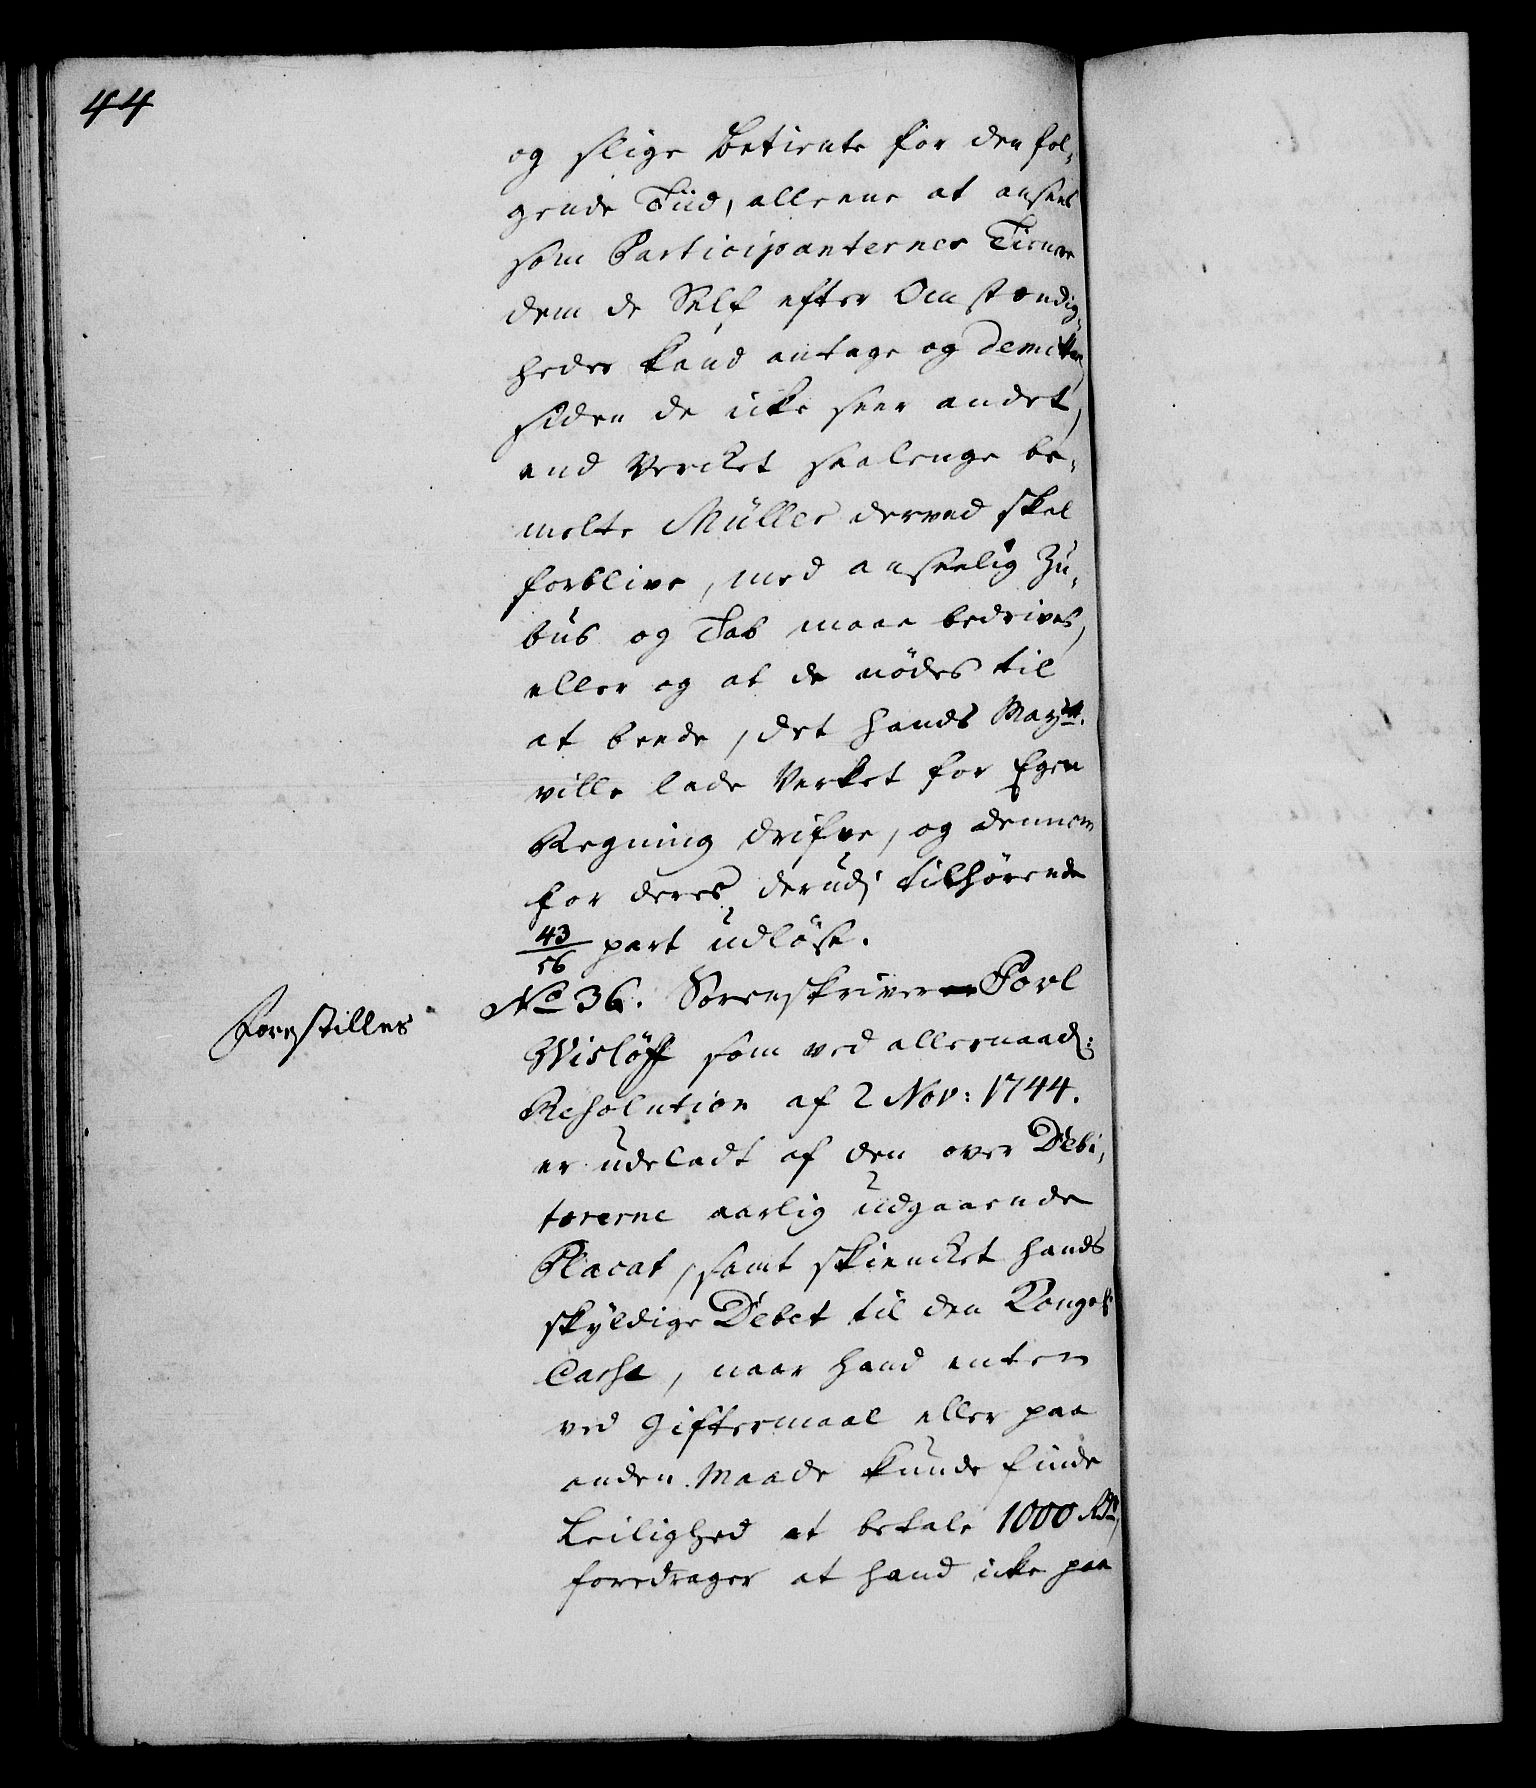 44
og slige Betiente for den føl-
gende Tiid, alleene at ansees
som Participanternes Tienere
dem de Self efter Omstændig-
heder kand antage og demittere,
siden de icke seer andet,
end Vercket saalenge be-
melte Müller derved skal
forblive, med anseelig Zu-
bus og Tab maae bedrives,
eller og at de nødes til
at beede, det Hands Mayst.
ville lade Verket for Egen
Regning drifve, og dennem
for deres derudj tilhørende
43/56 part udløse.
Forestilles
No 36. Sorenskriver Povl
Wisløff som ved allernaad:
Resolution af 2 Nov: 1744.
er udeladt af den over Debi-
torerne aarlig udgaaende
Placat, samt skiencket hands
skyldige Debet til den Kongel:
Cassa, naar hand enten
ved Giftermaal eller paa
anden Maade kunde finde
Leilighed at betale 1000 Rdr,
foredrager at hand icke paa